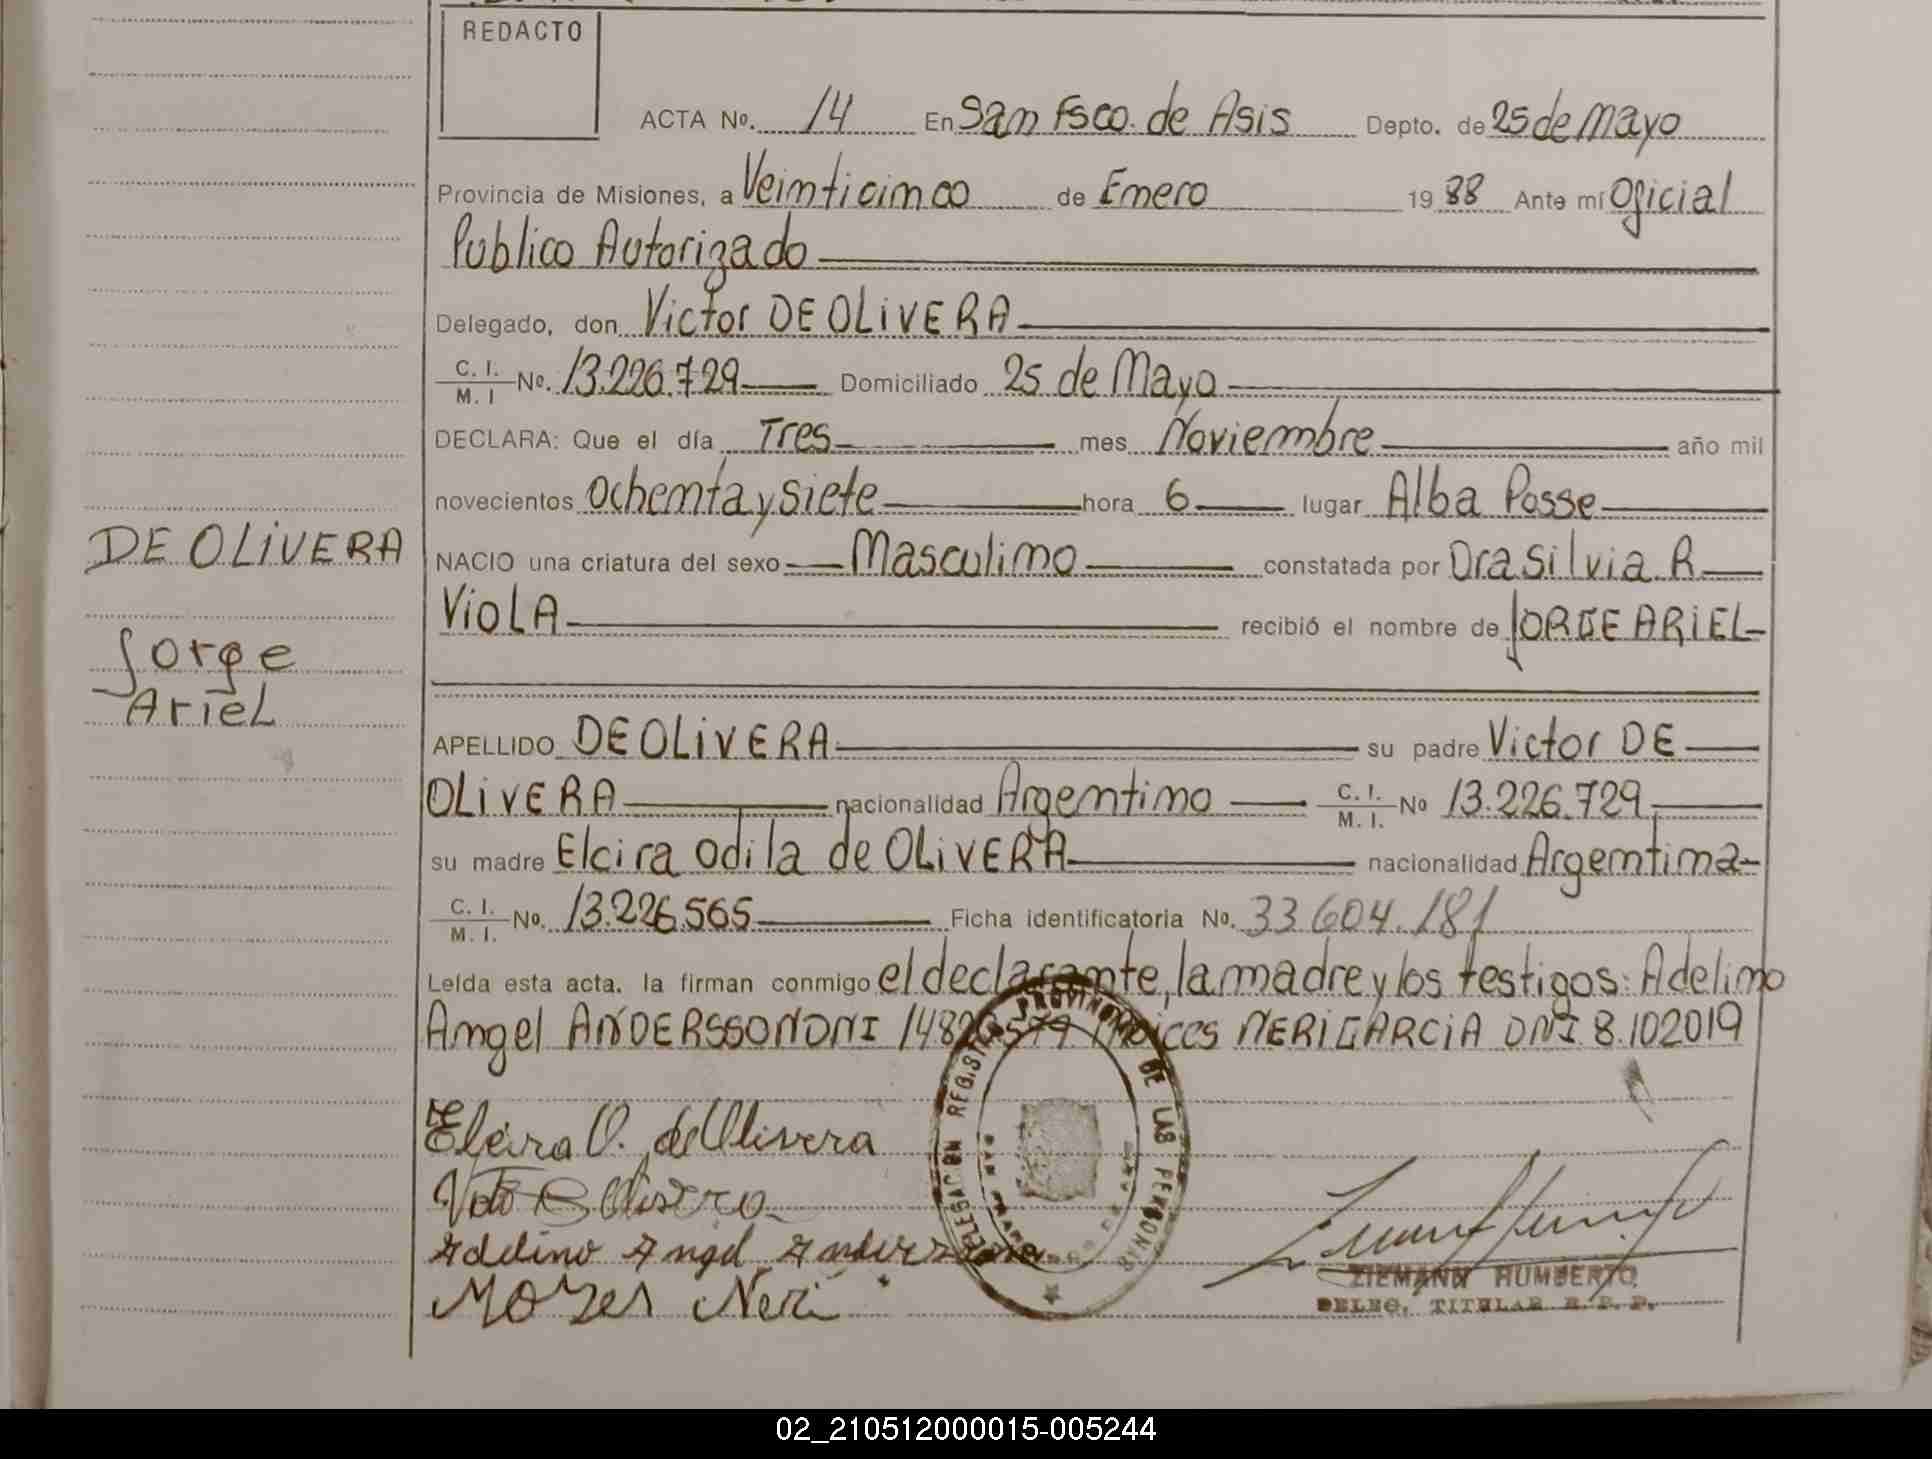 REDACTO
ACTA No. 14 En San Fsco. de Asis Depto. de 25 de Mayo
Provincia de Misiones, a Veinticinco de Enero 1988 Ante mí Oficial
Publico Autorizado
Delegado, don Victor DE OLIVERA
C. I. M. I No. 13.226.729 Domiciliado 25 de Mayo
DECLARA: Que el día Tres mes Noviembre año mil
novecientos Ochenta y Siete hora 6 lugar Alba Posse
DE OLIVERA
NACIO una criatura del sexo Masculino constatada por Dra Silvia R
VIOLA recibió el nombre de JORGE ARIEL
Jorge
Ariel
APELLIDO DE OLIVERA su padre Victor DE
OLIVERA nacionalidad Argentino C. I. M. I. No 13.226.729
su madre Elcira Odila de OLIVERA nacionalidad Argentina
C. I. M. I. No. 13.226.565 Ficha identificatoria No. 33 604.181
Leída esta acta, la firman conmigo el declarante, la madre y los testigos: Adelino
Angel ANDERSSON DNI NERI GARCIA DNI 8.102019
Elcira O. de Olivera
Adelino Angel
Mozes Neri
DELEGACION REG. PROVINCIAL DE LAS PERSONAS
ZIEMANN HUMBERTO
DELEG. TITULAR R.P.P.
02_210512000015-005244